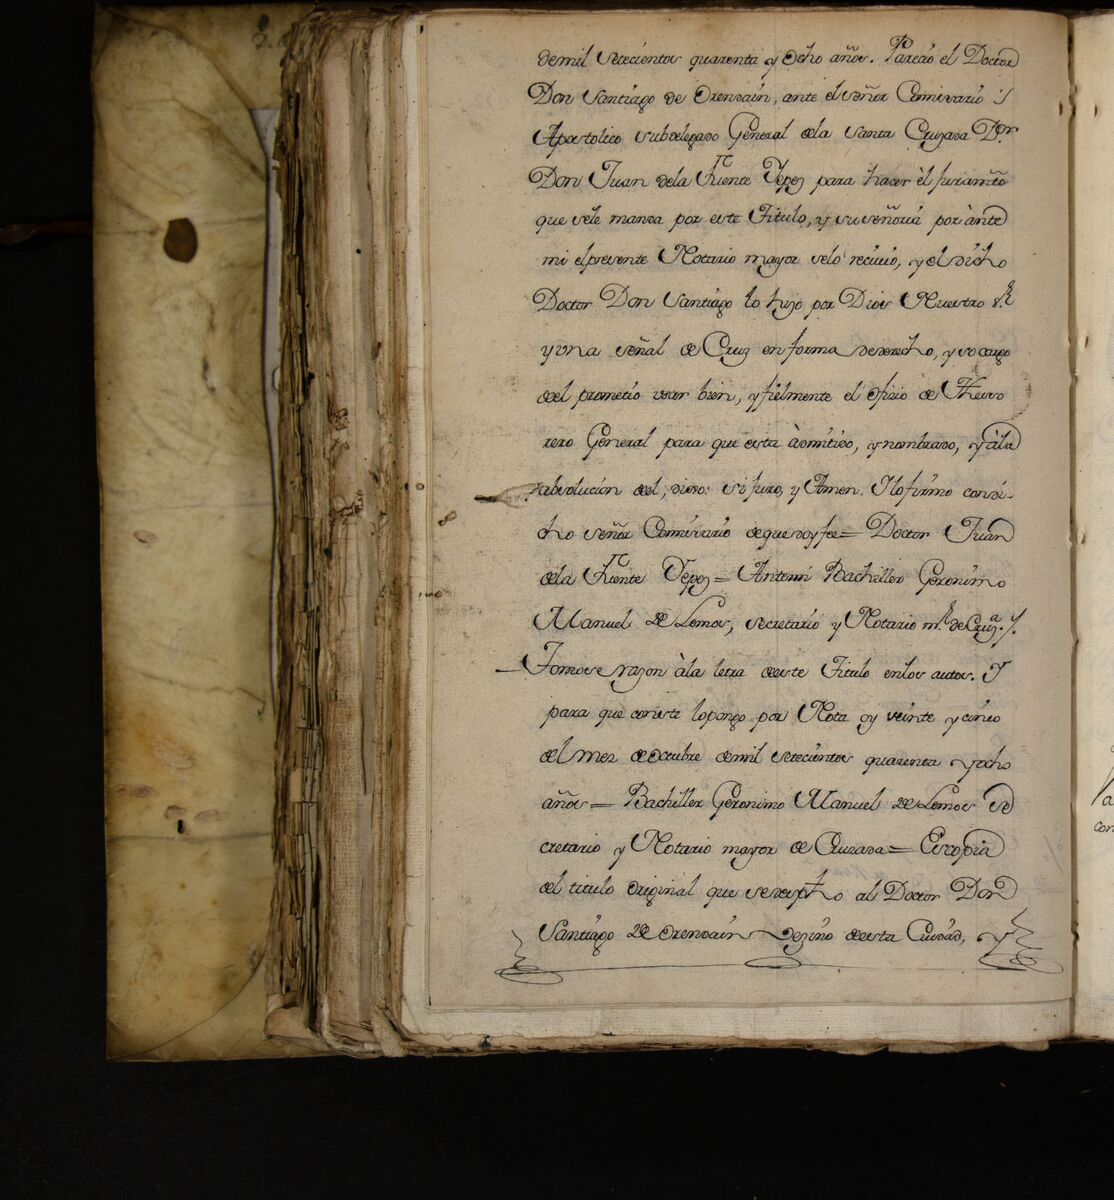 de mil setecientos quarenta y ocho años. Parecio el Doctor
Don Santiágo de Orendaín, ante el señor Comisario
Apostolico subdelegado General dela Santa Cruzada Dor.
Don Juan dela Fuente Yepez para hacer èl juramto
que sele manda por este Titulo, y su señoria por ànte
mi el presente Notario mayor selo reciuio, y el dicho
Doctor Don Santiágo lo hizo por Dios Nuestro Sr.
y una señal de Cruz en forma de derecho, y so cargo
del prometio usar bien, y fielmente el oficio de Theso
rero General para que esta àdmitido, y nombrado, y àla
absolucion del, dixo: si juro, y Amen. Ylo firmo con di-
cho señor Comisario de que doy fee = Doctor Juan
dela Fuente Yepez = Antemi Bachiller Geronimo
Manuel de Lemos, secretario y Notario mr. de Cruza.
Tomose razon àla letra deeste Titulo enlos autos. Y
para que conste lo pongo por Nota oy veinte y cinco
del mes de octubre demil setecientos quarenta y ocho
años = Bachiller Geronimo Manuel de Lemos se
cretario y Notario mayor de Cruzada = Es copia
del titulo original que se desp.cho al Doctor Don
Santiágo de Orendaín vezino deesta Ciudad, y